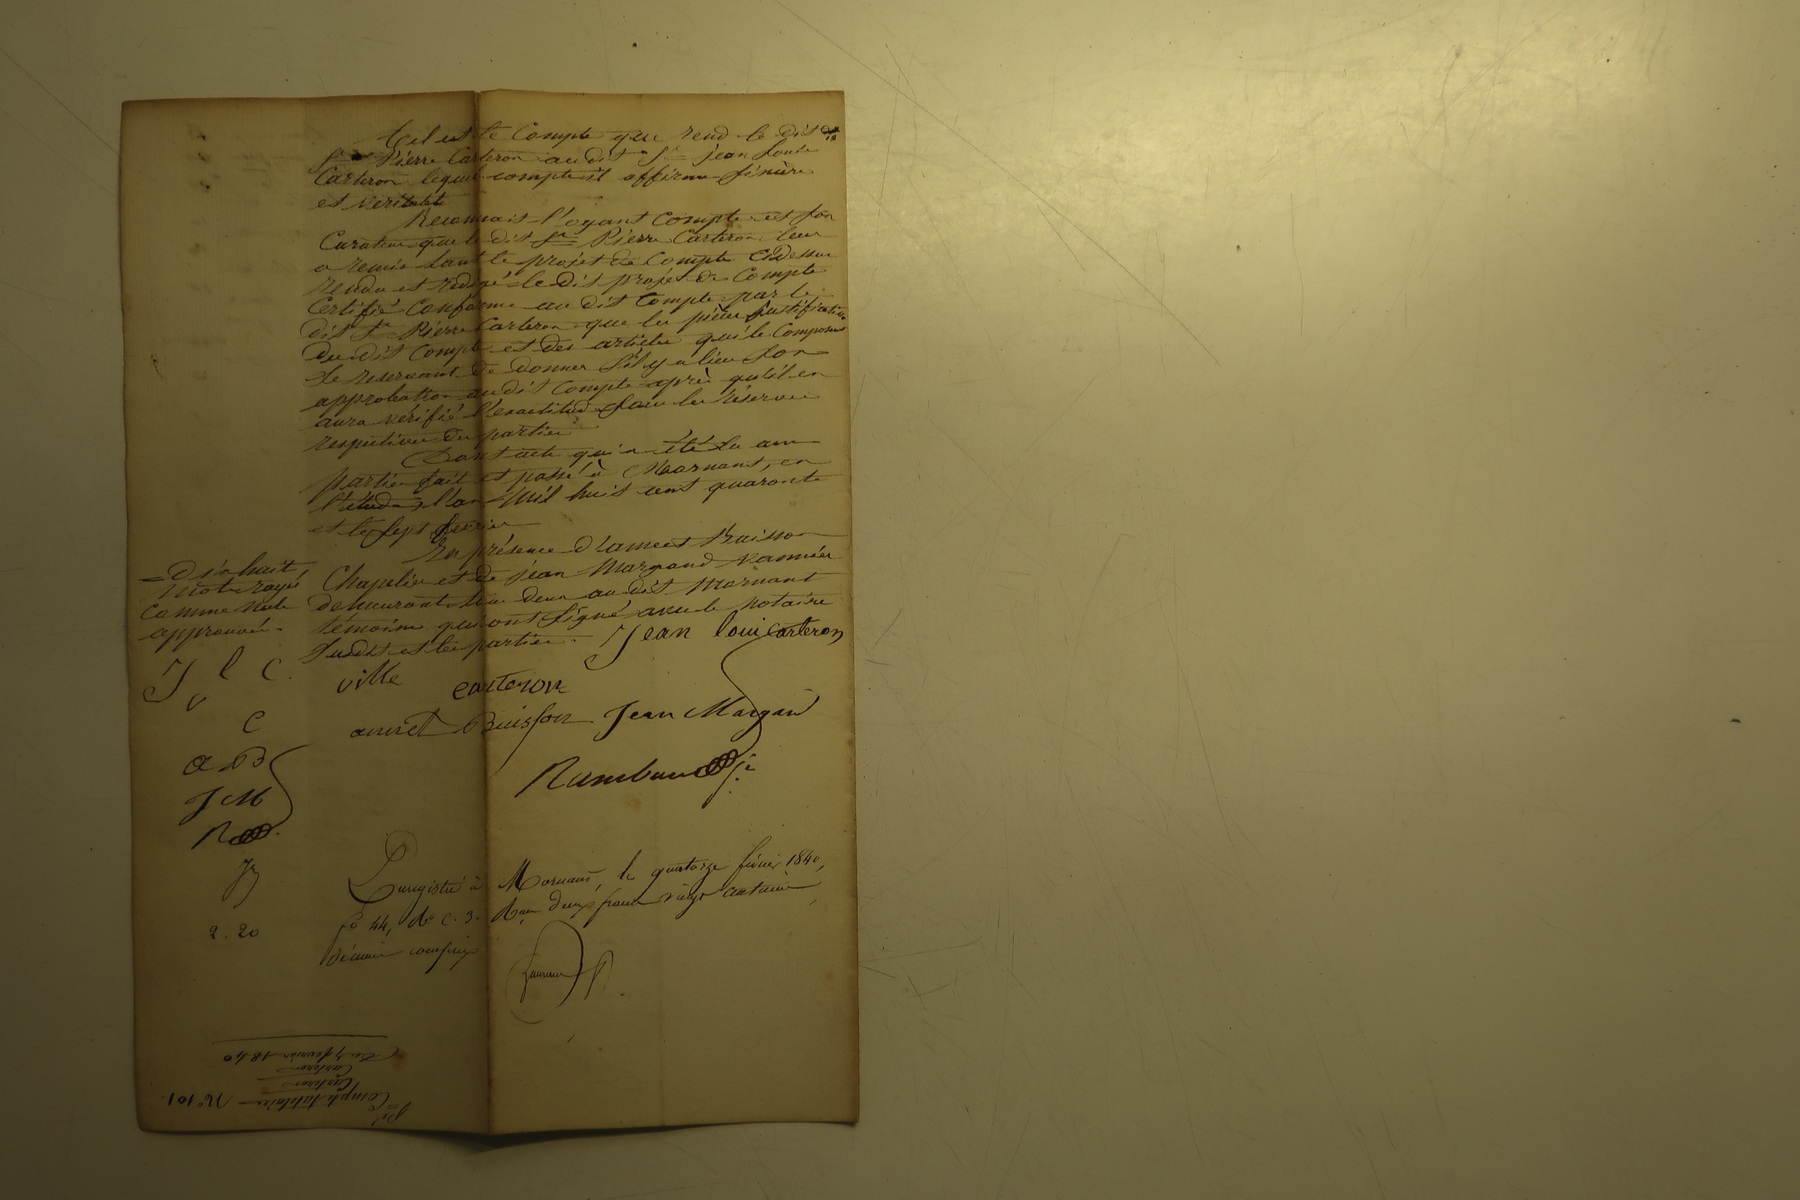 Tel est le Compte que rend le dit
Sr Pierre Carteron au dit Sr jean Louis
Carteron lequel compte il affirme sincère
et véritable
Reconnait l'oyant Compte et son
Curateur que le dit Sr Pierre Carteron leur
a remis tant le projet de Compte cidessus
rendu et rédigé le dit projet de Compte
Certifié conforme au dit Compte par le
dit Sr Pierre Carteron que les pièces justificatives
du dit Compte et des articles qui le composent
Se réservant de donner s'il y a lieu son
approbation au dit Compte après qu'il en
aura vérifié l'exactitude sous les réserves
respectives des parties
Dont acte qui a été lu aux
parties fait et passé à Mornant, en
l'étude, l'an Mil huit cent quarante
et le sept février
En présence d'annet Buisson
Chapelier et de jean Margand vannier
demeurant tous deux au dit Mornant
témoins qui ont signé avec le notaire
susdit et les parties. Jean loui carteron
= D'six huit
mots rayés
comme nuls
approuvés.
J l C.
ville carteron
C
annet Buisson Jean Margand
a B
J M
R
2.20
Enregistré à Mornant, le quatorze février 1840,
fo 44, Vo C. 3. Reçu deux francs vingt centimes
décime compris
Compte tutélaire — No 101.
Carteron
Carteron
Du 7 février 1840